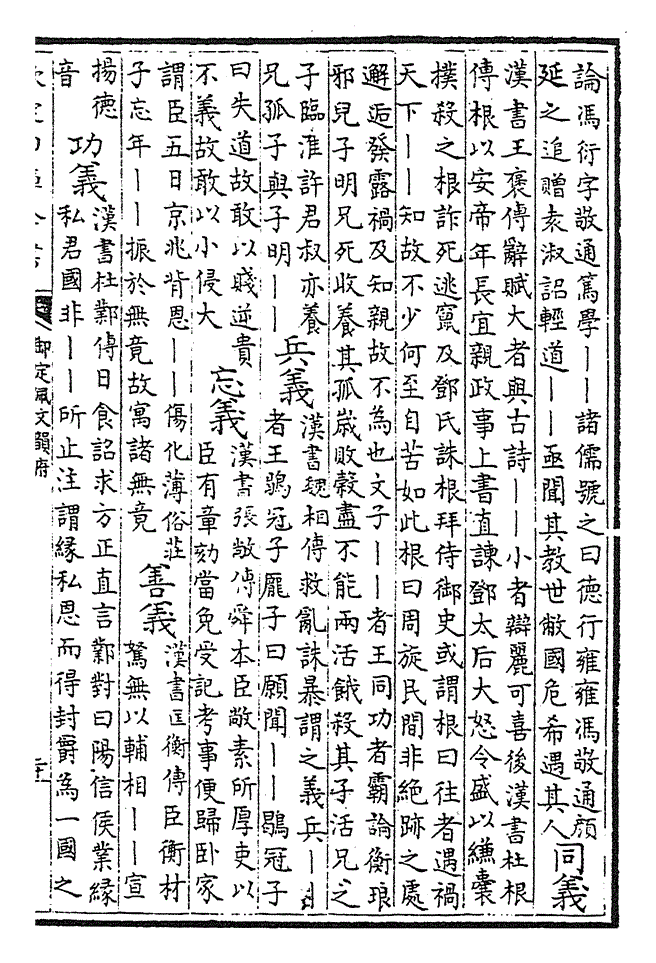 論馮衍字敬通篤學||諸儒號之曰德行雍雍馮敬通顏
延之追贈袁淑詔輕道||亟聞其教世敝國危希遇其人
同義
漢書王褒傳辭賦大者與古詩||小者辯麗可喜後漢書杜根
傳根以安帝年長宜親政事上書直諫鄧太后大怒令盛以縑囊
撲殺之根詐死逃竄及鄧氏誅根拜侍御史或謂根曰往者遇禍
天下||知故不少何至自苦如此根曰周旋民間非絕跡之處
邂逅發露禍及知親故不為也文子||者王同功者霸論衡琅
邪兒子明兄死收養其孤歲敗穀盡不能兩活餓殺其子活兄之
子臨淮許君叔亦養
兄孤子與子明||
兵義
漢書魏相傳救亂誅暴謂之義兵||
者王鶡冠子龐子曰願聞||鶡冠子
曰失道故敢以賤逆貴
不義故敢以小侵大
忘義
漢書張敞傳舜本臣敞素所厚吏以
臣有章劾當免受記考事便歸卧家
謂臣五日京兆背恩||傷化薄俗莊
子忘年||振於無竟故寓諸無竟
善義
漢書匡衡傳臣衡材
駑無以輔相||宣
揚德
音
功義
漢書杜鄴傳日食詔求方正直言鄴對曰陽信侯業緣
私君國非||所止注謂緣私恩而得封爵為一國之
御定佩文韻府